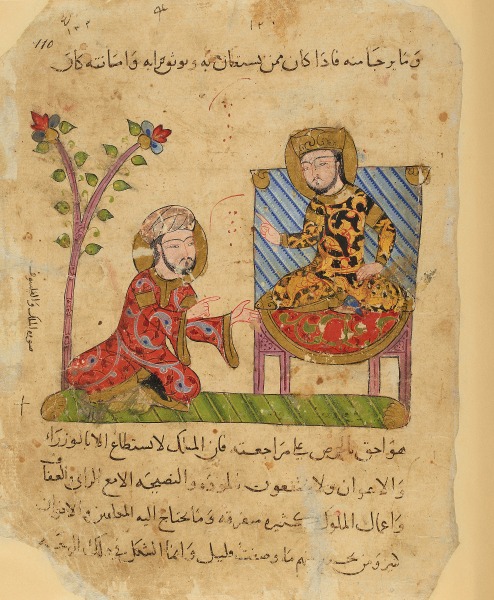 ١٢٠
110
وما يرجا منه فاذا كان ممن يستعان به ويوثق برايه وامانته كان
صورة الملك والفيلسوف
هو احق بالحرص على مراجعته فان الملك لا يستطاع الا بالوزراء
والاعوان ولا ينتفعون بالموده والنصيحه الا مع الراي والعفاف
واعمال الملوك كثيره متفرقه وما يحتاج اليه
ومن يجمع منهم ما وصفت قليل وانما في ذلك